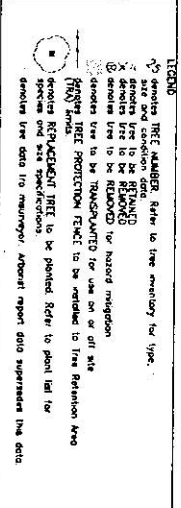 LEGEND
denotes TREE NUMBER. Refer to tree inventory for type,
size and condition data.
denotes tree to be RETAINED
x denotes tree to be REMOVED
denotes tree to be REMOVED for hazard mitigation
denotes tree to be TRANSPLANTED for use on or off site
denotes TREE PROTECTION FENCE to be installed to Tree Retention Area
(TRA) limits.
denotes REPLACEMENT TREE to be planted. Refer to plant list for
species and size specifications.
denotes tree data fro msurveyor. Arborist report data supersedes this data.